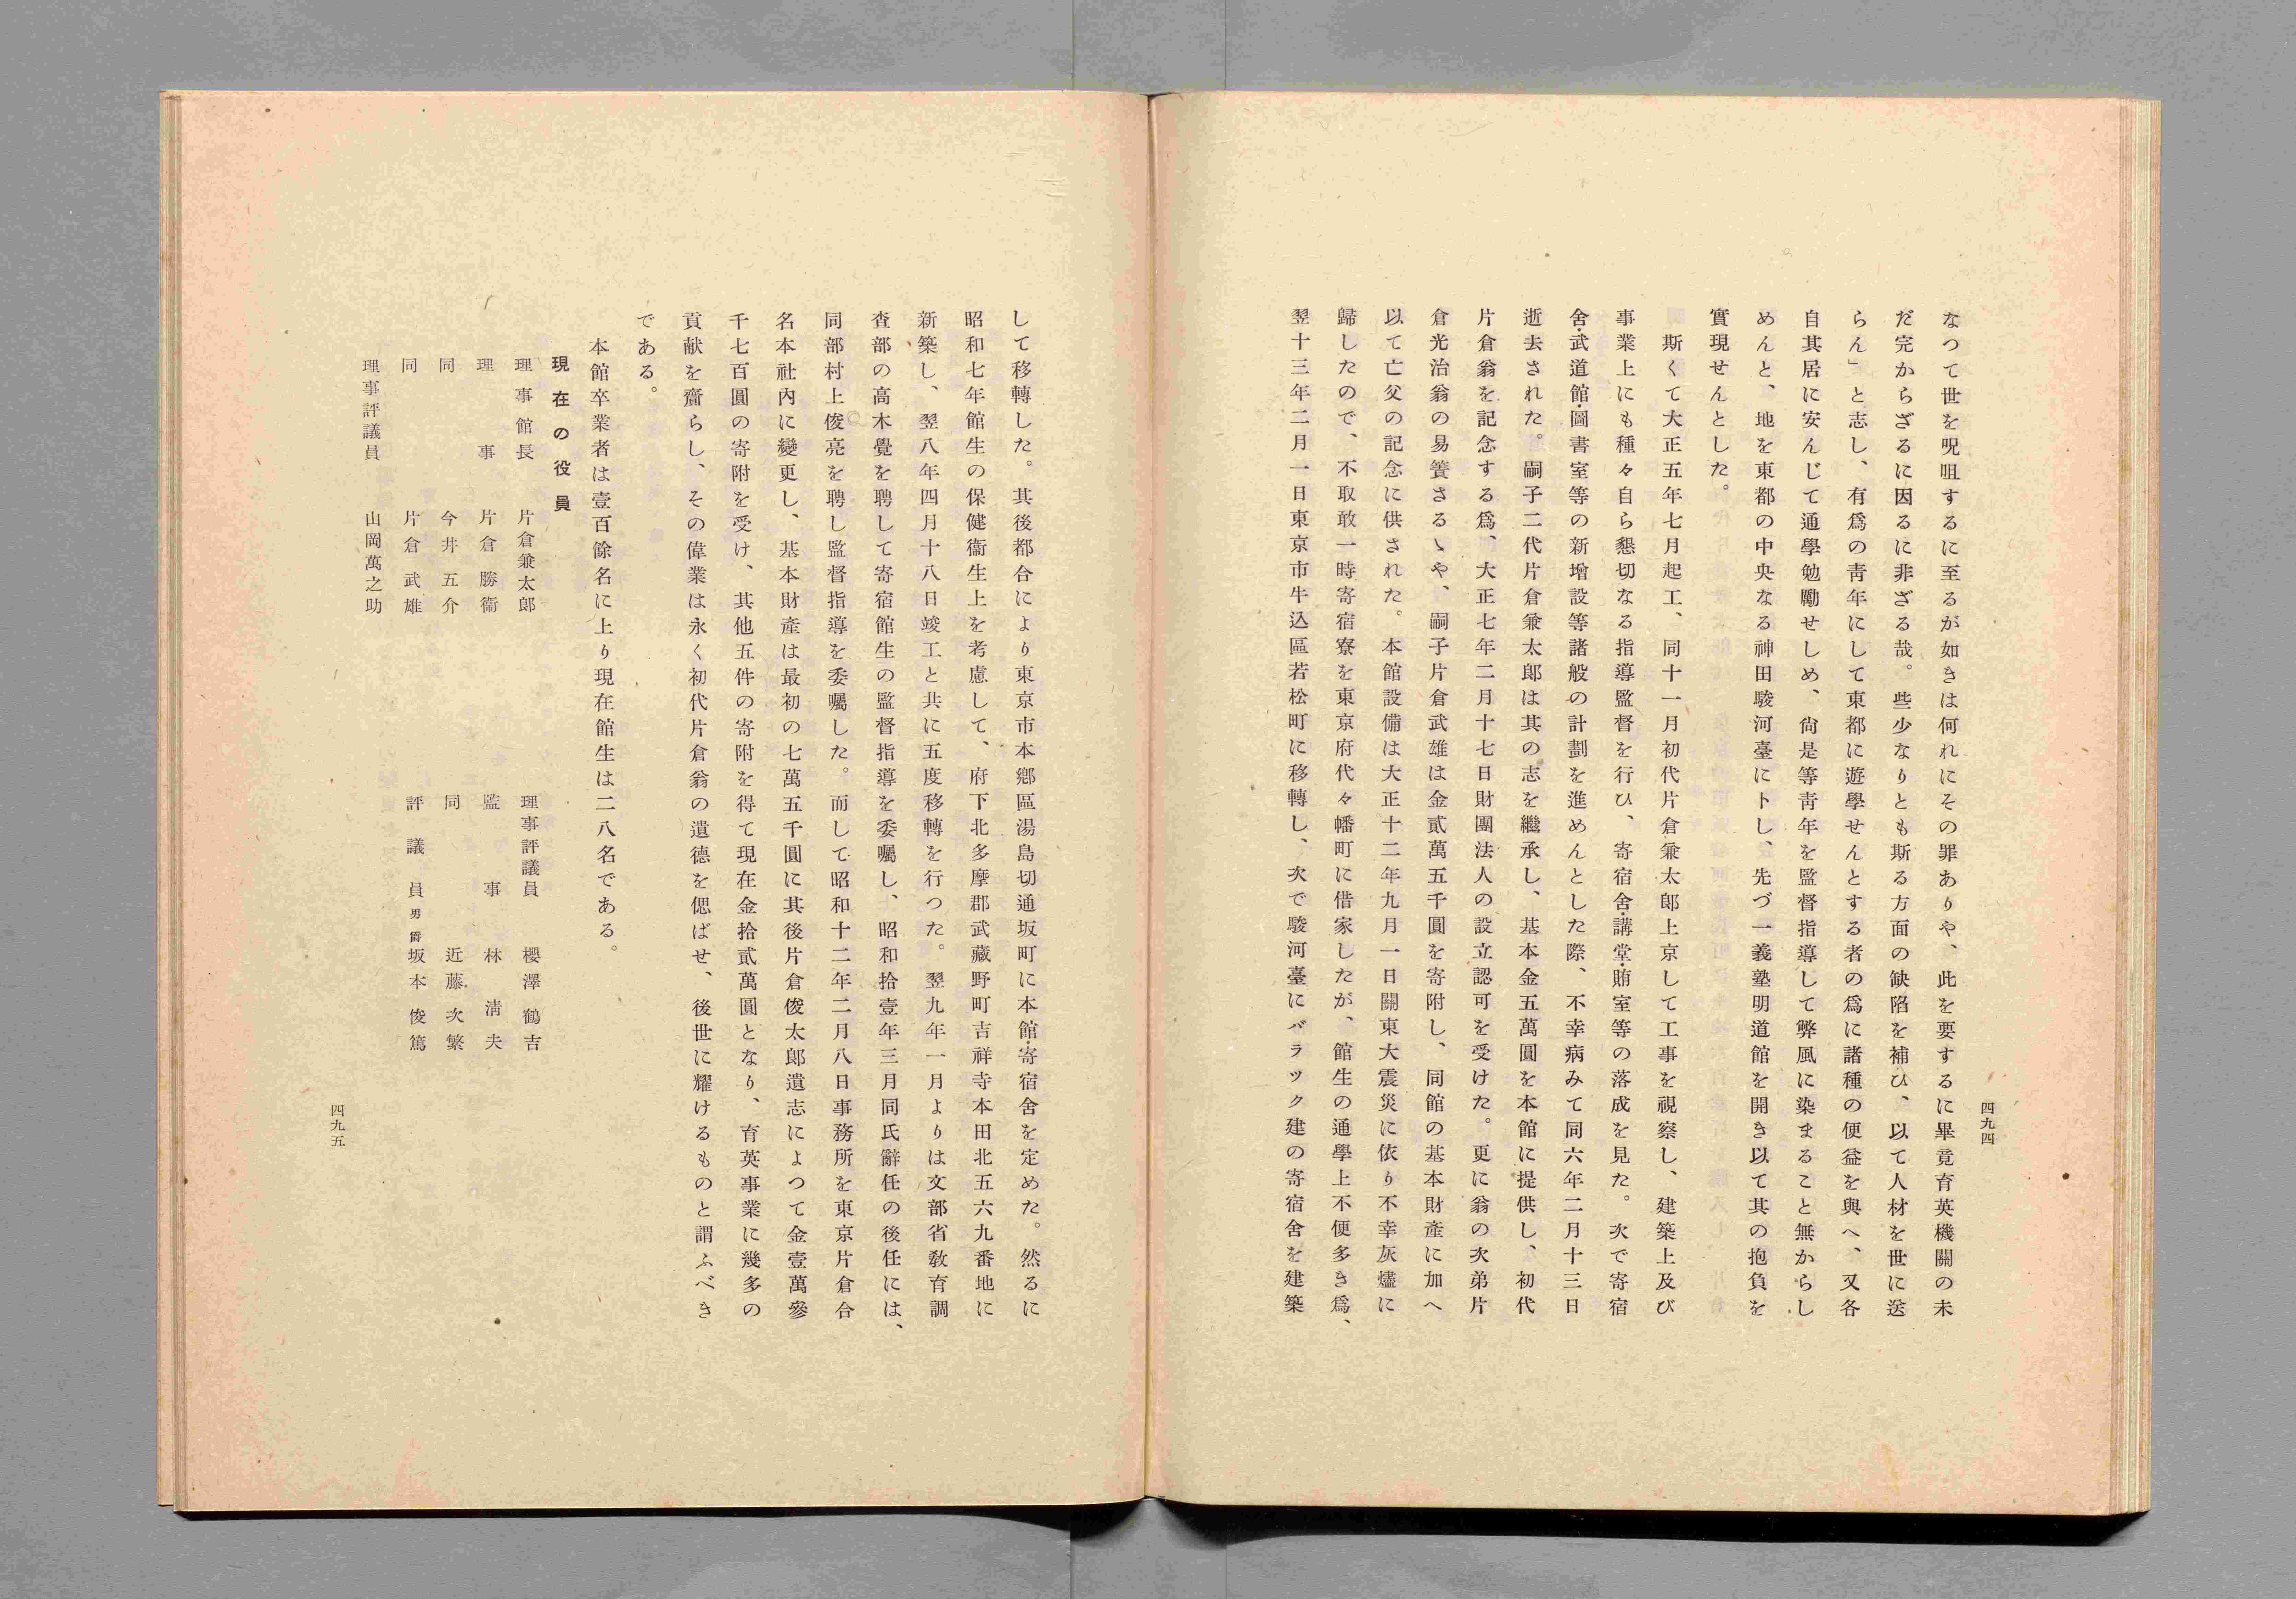 四九四
なつて世を呪咀するに至るが如きは何れにその罪ありや、此を要するに畢竟育英機關の未
だ完からざるに因るに非ざる哉。些少なりとも斯る方面の缺陷を補ひ、以て人材を世に送
らん」と志し、有爲の靑年にして東都に遊學せんとする者の爲に諸種の便益を與へ、又各
自其居に安んじて通學勉勵せしめ、尙是等靑年を監督指導して弊風に染まること無からし
めんと、地を東都の中央なる神田駿河臺に卜し、先づ一義塾明道館を開き以て其の抱負を
實現せんとした。
斯くて大正五年七月起工、同十一月初代片倉兼太郞上京して工事を視察し、建築上及び
事業上にも種々自ら懇切なる指導監督を行ひ、寄宿舍・講堂・賄室等の落成を見た。次で寄宿
舍・武道館・圖書室等の新增設等諸般の計劃を進めんとした際、不幸病みて同六年二月十三日
逝去された。嗣子二代片倉兼太郞は其の志を繼承し、基本金五萬圓を本館に提供し、初代
片倉翁を記念する爲、大正七年二月十七日財團法人の設立認可を受けた。更に翁の次弟片
倉光治翁の易簀さるゝや、嗣子片倉武雄は金貳萬五千圓を寄附し、同館の基本財產に加へ
以て亡父の記念に供された。本館設備は大正十二年九月一日關東大震災に依り不幸灰燼に
歸したので、不取敢一時寄宿寮を東京府代々幡町に借家したが、館生の通學上不便多き爲、
翌十三年二月一日東京市牛込區若松町に移轉し、次で駿河臺にバラック建の寄宿舍を建築
して移轉した。其後都合により東京市本鄕區湯島切通坂町に本館・寄宿舍を定めた。然るに
昭和七年館生の保健衞生上を考慮して、府下北多摩郡武藏野町吉祥寺本田北五六九番地に
新築し、翌八年四月十八日竣工と共に五度移轉を行つた。翌九年一月よりは文部省敎育調
査部の高木覺を聘して寄宿館生の監督指導を委囑し、昭和拾壹年三月同氏辭任の後任には、
同部村上俊亮を聘し監督指導を委囑した。而して昭和十二年二月八日事務所を東京片倉合
名本社內に變更し、基本財產は最初の七萬五千圓に其後片倉俊太郞遺志によつて金壹萬參
千七百圓の寄附を受け、其他五件の寄附を得て現在金拾貳萬圓となり、育英事業に幾多の
貢献を齎らし、その偉業は永く初代片倉翁の遺德を偲ばせ、後世に耀けるものと謂ふべき
である。
本館卒業者は壹百餘名に上り現在館生は二八名である。
現在の役員
理事館長 片倉兼太郞 理事評議員 櫻澤鶴吉
理事 片倉勝衞 監事 林淸夫
同 今井五介 同 近藤次繁
同 片倉武雄 評議員 男爵 坂本俊篤
理事評議員 山岡萬之助
四九五